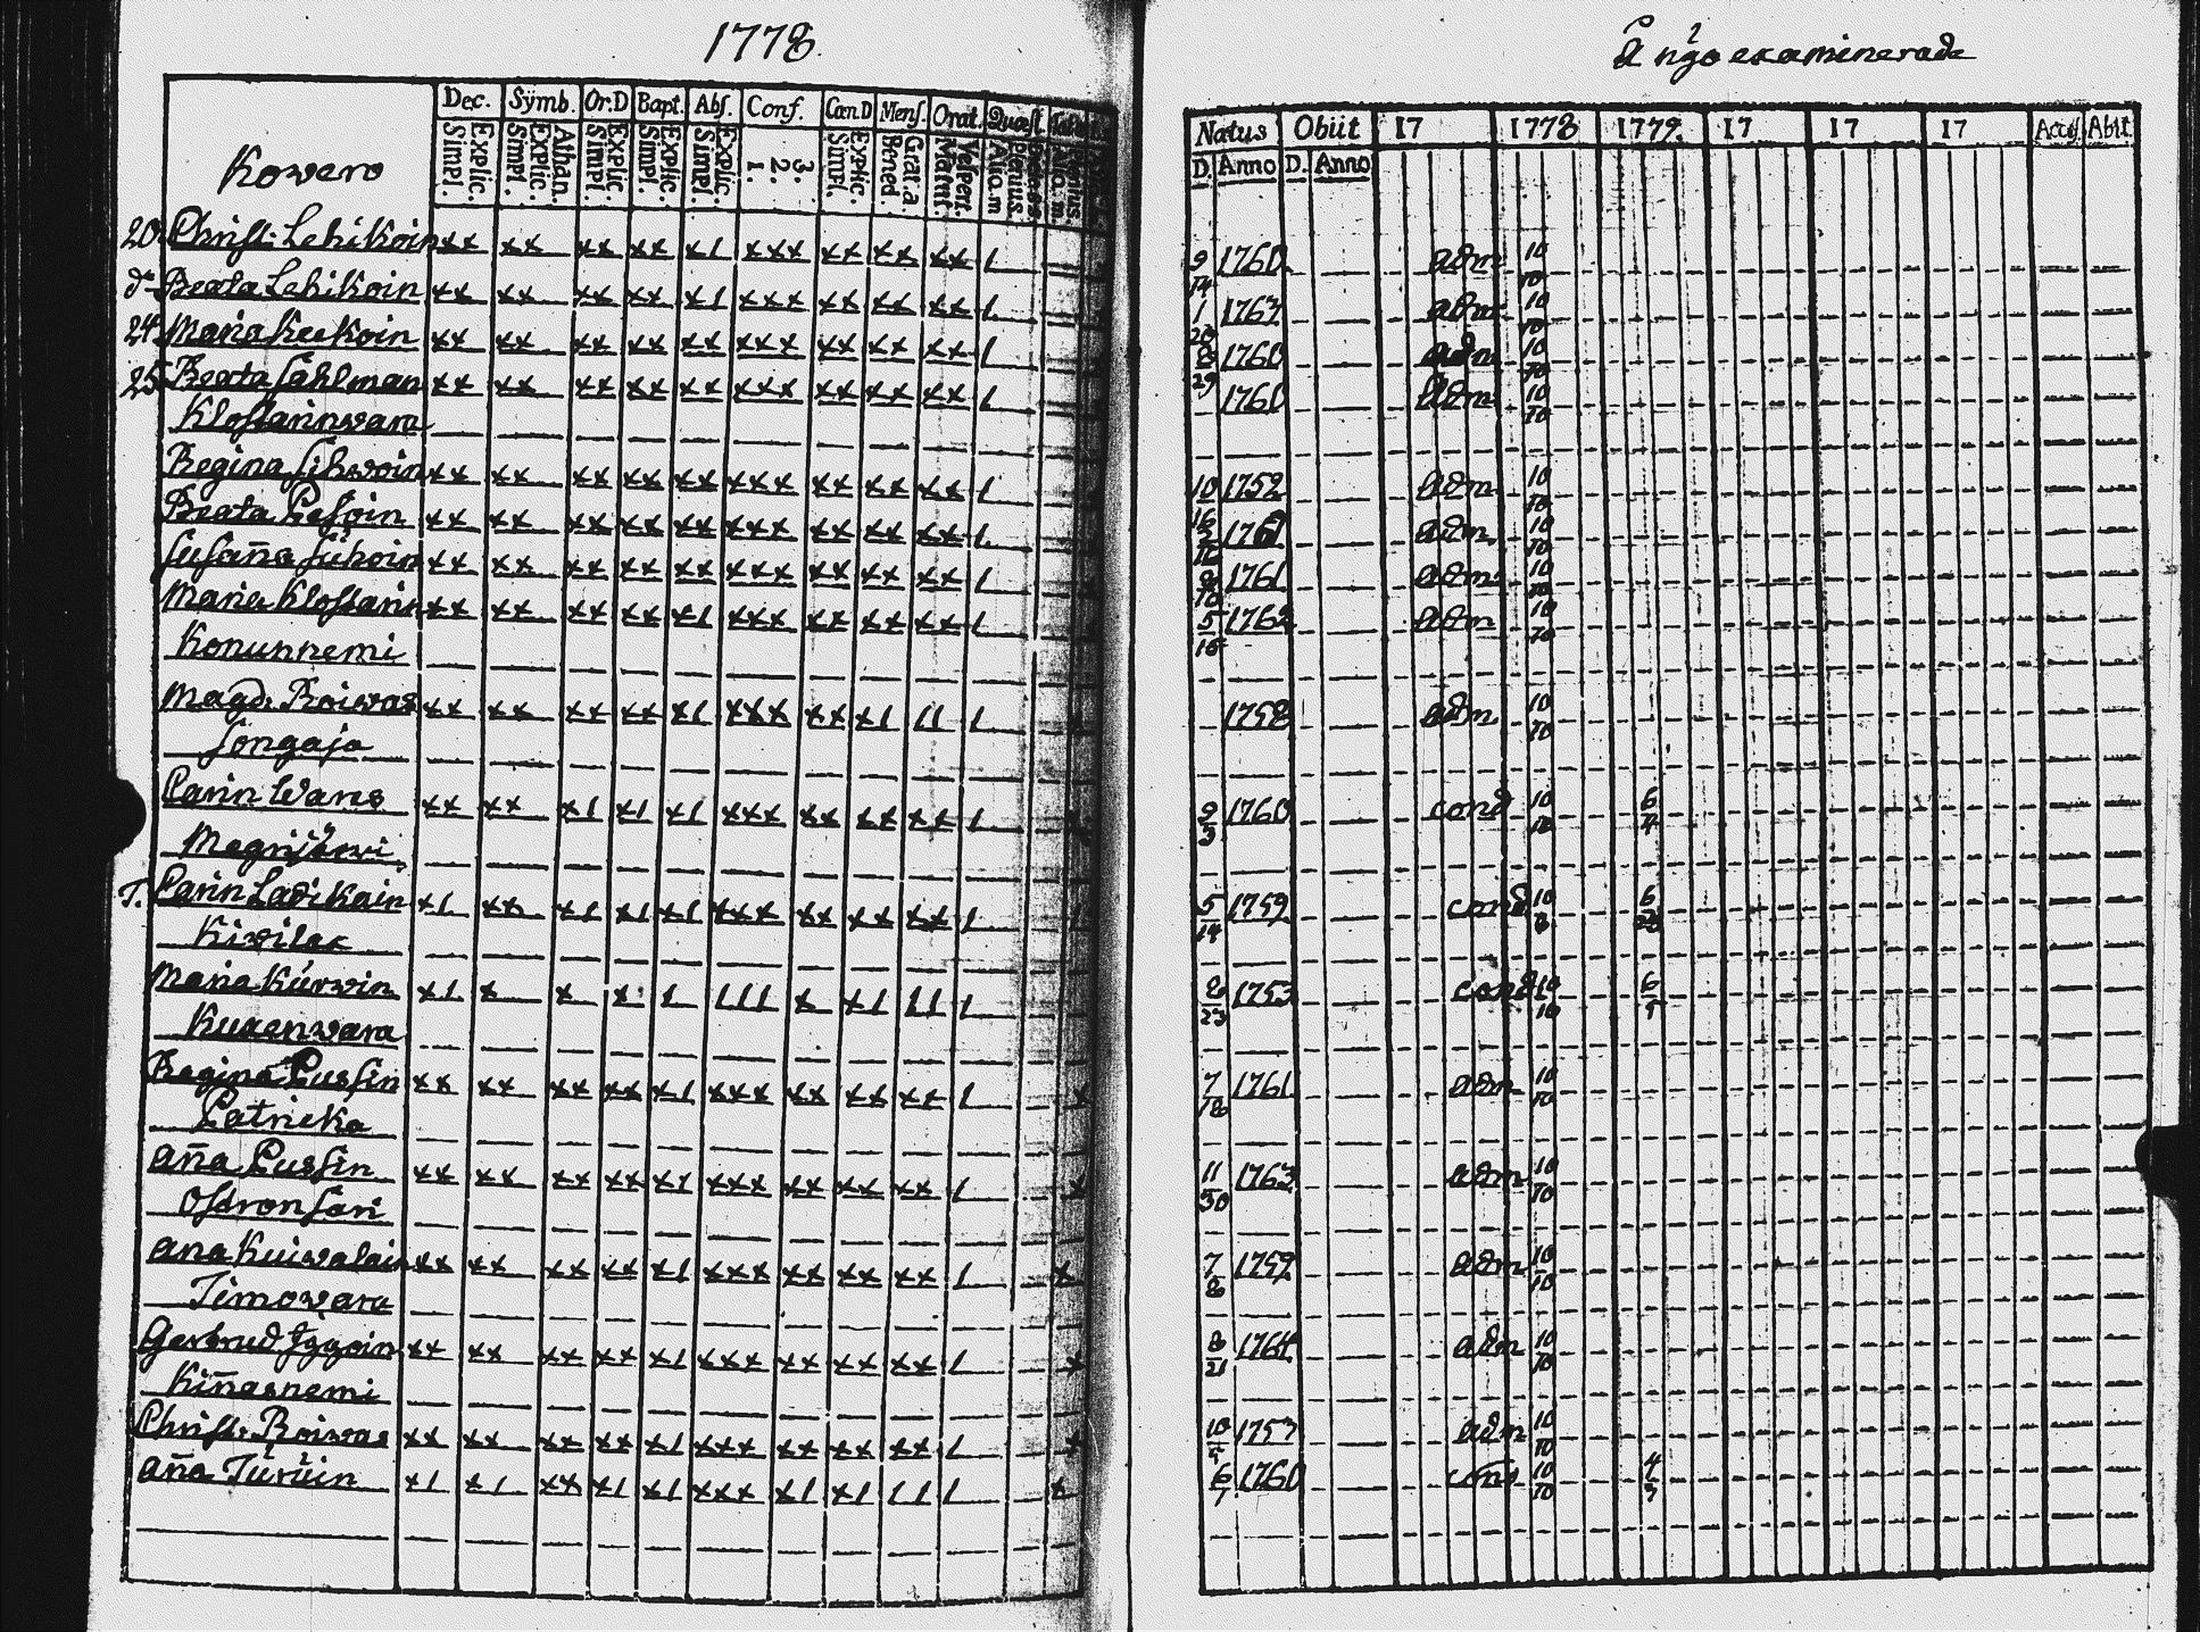 1778.
Dec. Sÿmb. Or.D Bapt. Abs. Conf. Cœn.D Mens. Orat. Quæst.
Kowero
Explic. Simpl. Athan. Explic. Simpl. Explic. Simpl. Explic. Simpl. Explic. Simpl. 3. 2. 1. Explic. Simpl. Grat.a. Bened. Vespert. Matut. Plenius. Alia.m
20. Christ: Lehikoin xx xx xx xx x1 xxx xx xx xx 1
do Beata Lehikoin xx xx xx xx x1 xxx xx xx xx 1
24. Maria Keekoin xx xx xx xx xx xxx xx xx xx 1
25 Beata Sahlman xx xx xx xx xx xxx xx xx xx 1
Klossarinwara
Regina Sihwoin xx xx xx xx xx xxx xx xx xx 1
Beata Pesoin xx xx xx xx xx xxx xx xx xx 1
Susaña Sihoin xx xx xx xx xx xxx xx xx xx 1
Maria Klossarin xx xx xx xx x1 xxx xx xx xx 1
Konunnemi
Magd. Roiwas xx xx xx xx x1 xxx xx x1 11 1
Songaja
Carin Wans xx xx x1 x1 x1 xxx xx xx xx 1
Megrijärwi
T. Carin Ladikain x1 xx x1 x1 x1 xxx xx xx xx 1
Kiwilax
Maria Kürwin x1 x x x 1 111 x x1 11 1
Kuxenwara
Regina Pussin xx xx xx xx x1 xxx xx xx xx 1 x
Patricka
Aña Pussin xx xx xx xx x1 xxx xx xx xx 1 x
Ostronsari
Ana Kuiwalain xx xx xx xx x1 xxx xx xx xx 1 x
Timowara
Gertrud Iggoin xx xx xx xx x1 xxx xx xx xx 1 x
Kiñasnemi
Christ. Roiwas xx xx xx xx x1 xxx xx xx xx 1 x
Aña Türüin x1 x1 xx x1 x1 xxx x1 x1 11 1 x
Å nÿo examinerade
Natus Obiit 17 1778 1779. 17 17 17 Access. Abiit.
D. Anno D. Anno
9/14 1760 adm 10/10
1/20 1763 adm 10/10
8/29 1760 adm 10/10
1760 adm 10/10
10/16 1752 adm 10/10
1761 adm 10/10
9/10 1761 adm 10/10
5/18 1762 adm 10/10
1758 adm 10/10
9/3 1760 cond 10/10 6/4
5/14 1759 cond 10/8 6/28
8/23 1753 cond 10/10 6/9
7/18 1761 adm 10/10
11/30 1763 adm 10/10
7/8 1759 adm 10/10
8/21 1764 adm 10/10
10/5 1757 adm 10/10
6/7 1760 cond 10/10 4/9